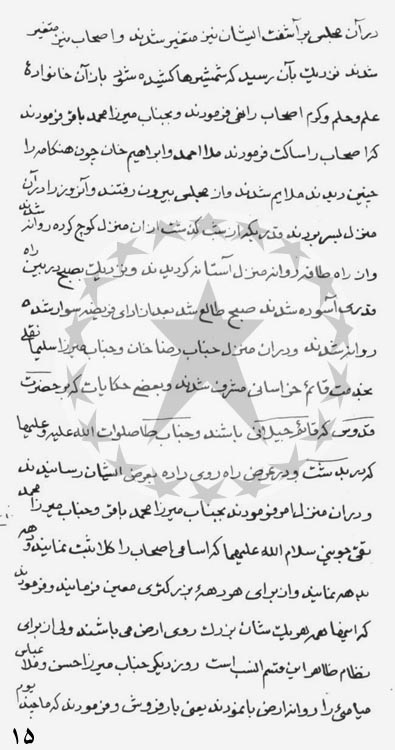 در آن مجلس بر آشفت ایشان نیز متغیر شدند و اصحاب نیز متغیر
شدند نزدیک بآن رسید که شمشیرها کشیده شود باز آن خانوادهٔ
علم و حلم و کرم اصحاب را نهی فرمودند و بجناب میرزا محمد باقر فرمودند
که اصحاب را ساکت فرمودند ملا احمد و ابراهیم خان چون هنکامه را
چنین دیدند ملایم شدند و از مجلس بیرون رفتند و آنروز را در آن
منزل بسر بردند و قدریکه از شب کذشت از آن منزل کوچ کرده روانه شدند
و از راه طاقه روانه منزل آستانه کردیدند و نزدیک بصبح در بین راه
قدری آسوده شدند صبح طالع شد بعد از ادای فریضه سوار شده
روانه شدند و در آن منزل جناب رضا خان و جناب میرزا سلیمانقلی
بخدمت قائم خراسانی مشرف شدند و بعضی حکایات که بر حضرت
قدوس که قائم جیلانی باشند و جناب طا صلوات الله علیه و علیها
که در بدشت و در عرض راه روی داده بعرض ایشان رسانیدند
و در آن منزل امر فرمودند بجناب میرزا محمد باقر و جناب میرزا محمد
تقی جوینی سلام الله علیهما که اسامی اصحاب را کلا ثبت نمایند و دهه
بدهه نمایند و از برای هر دههٔ بزرکتری معین فرمایند و فرمودند
که اینها همه هر یک شان بزرک روی ارض می باشند ولی از برای
نظام ظاهر این قسم انسب است روز دیکر جناب میرزا حسن و ملا عباس
میامئی را روانه ارض با نمودند یعنی بارفروش و فرمودند که ما چند یوم
۱۵